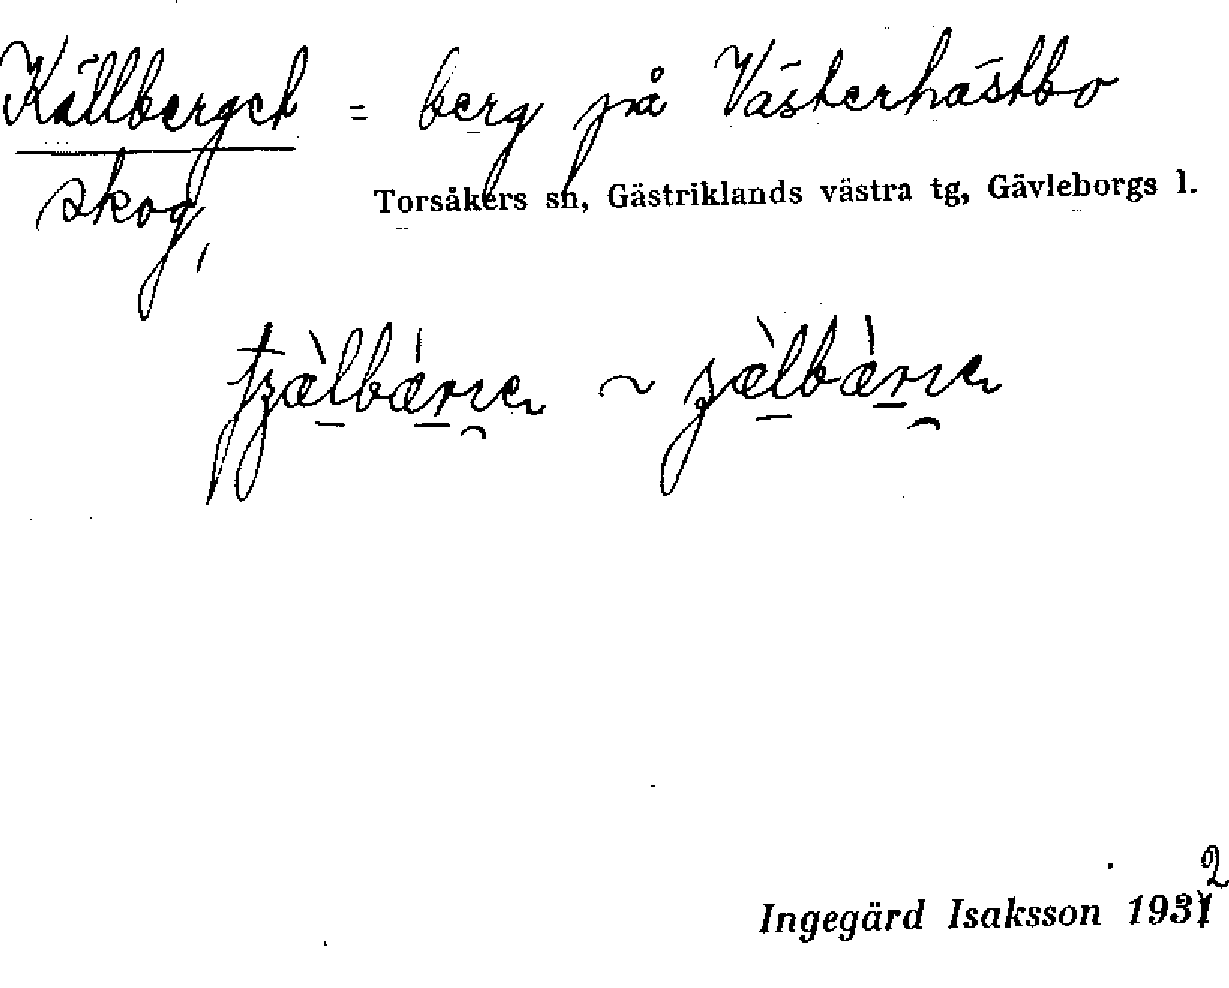 Källberget = berg på Västerhästbo
skog,
Torsåkers sn, Gästriklands västra tg, Gävleborgs l.
~
2
Ingegärd Isaksson 1931